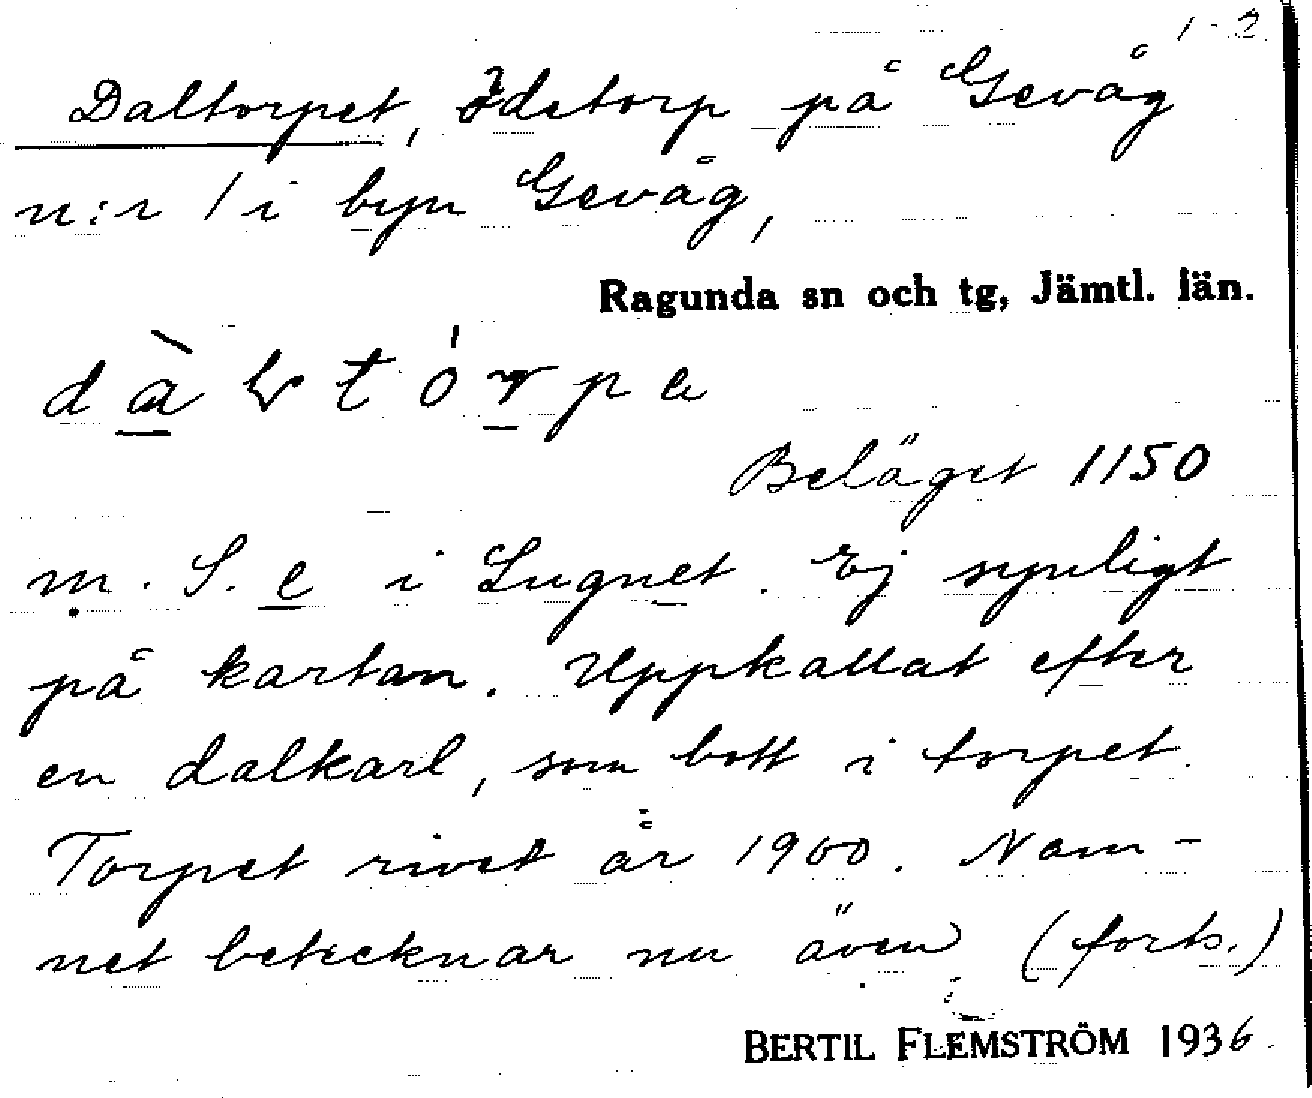 1-2
Daltorpet, Ödetorp på Gevåg
n:r 1 i byn Gevåg,
Ragunda sn och tg, Jämtl. län.
Beläget 1150
m. S. e i Lugnet. Ej synligt
på kartan. Uppkallat efter
en dalkarl, som bott i torpet.
Torpet rivet år 1900. Nam-
net betecknar nu även (forts.)
BERTIL FLEMSTRÖM 1936